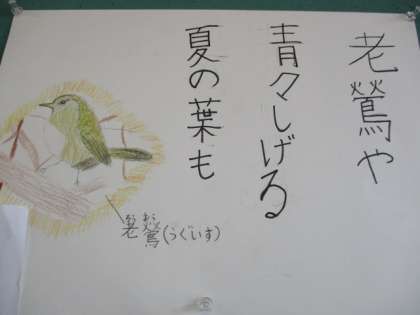 老鶯や
青々しげる
夏の葉も
老鶯(うぐいす)